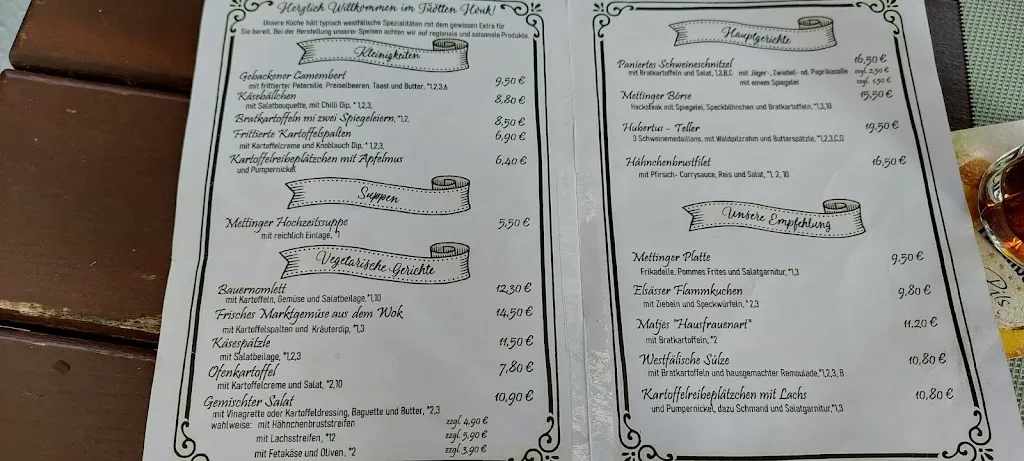 Herzlich Willkommen im Tüötten Höuk!
Unsere Küche hält typisch westfälische Spezialitäten mit dem gewissen Extra für
Sie bereit. Bei der Herstellung unserer Speisen achten wir auf regionale und saisonale Produkte.
Kleinigkeiten
Gebackener Camembert 9,50 €
mit frittierter Petersilie, Preiselbeeren, Toast und Butter, *1,2,3,6
Käsebällchen 8,80 €
mit Salatbouquette, mit Chilli Dip, *1,2,3,
Bratkartoffeln mi zwei Spiegeleiern, *1,2, 8,50 €
Frittierte Kartoffelspalten 6,90 €
mit Kartoffelcreme und Knoblauch Dip, * 1,2,3.
Kartoffelreibeplätzchen mit Apfelmus 6,40 €
und Pumpernickel
Suppen
Mettinger Hochzeitssuppe 5,50 €
mit reichlich Einlage, *1
Vegetarische Gerichte
Bauernomlett 12,30 €
mit Kartoffeln, Gemüse und Salatbeilage,*1,10
Frisches Marktgemüse aus dem Wok 14,50 €
mit Kartoffelspalten und Kräuterdip, *1,3
Käsespätzle 11,50 €
mit Salatbeilage, *1,2,3
Ofenkartoffel 7,80 €
mit Kartoffelcreme und Salat, *2,10
Gemischter Salat 10,90 €
mit Vinagrette oder Kartoffeldressing, Baguette und Butter, *2,3
wahlweise: mit Hähnchenbruststreifen zzgl. 4,90 €
mit Lachsstreifen, *12 zzgl. 5,90 €
mit Fetakäse und Oliven, *2 zzgl. 3,90 €
Hauptgerichte
Paniertes Schweineschnitzel 16,50 €
mit Bratkartoffeln und Salat, 1,3,8,G mit Jäger-, Zwiebel- od. Paprikasoße zzgl. 2,50 €
mit einem Spiegelei zzgl. 1,50 €
Mettinger Börse 15,50 €
Hacksteak mit Spiegelei, Speckböhnchen und Bratkartoffeln,*1,3,10
Hubertus - Teller 19,50 €
3 Schweinemedaillons, mit Waldpilzrahm und Butterspätzle, *1,2,3,C,D
Hähnchenbrustfilet 16,50 €
mit Pfirsich- Currysauce, Reis und Salat, *1, 2, 10
Unsere Empfehlung
Mettinger Platte 9,50 €
Frikadelle, Pommes Frites und Salatgarnitur,*1,3
Elsässer Flammkuchen 9,80 €
mit Ziebeln und Speckwürfeln, * 2,3
Matjes "Hausfrauenart" 11,20 €
mit Bratkartoffeln, *2
Westfälische Sülze 10,80 €
mit Bratkartoffeln und hausgemachter Remoulade,*1,2,3, 8
Kartoffelreibeplätzchen mit Lachs 10,80 €
und Pumpernickel, dazu Schmand und Salatgarnitur,*1,3